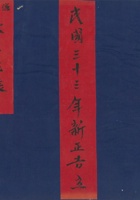 民國三十三年新正吉立